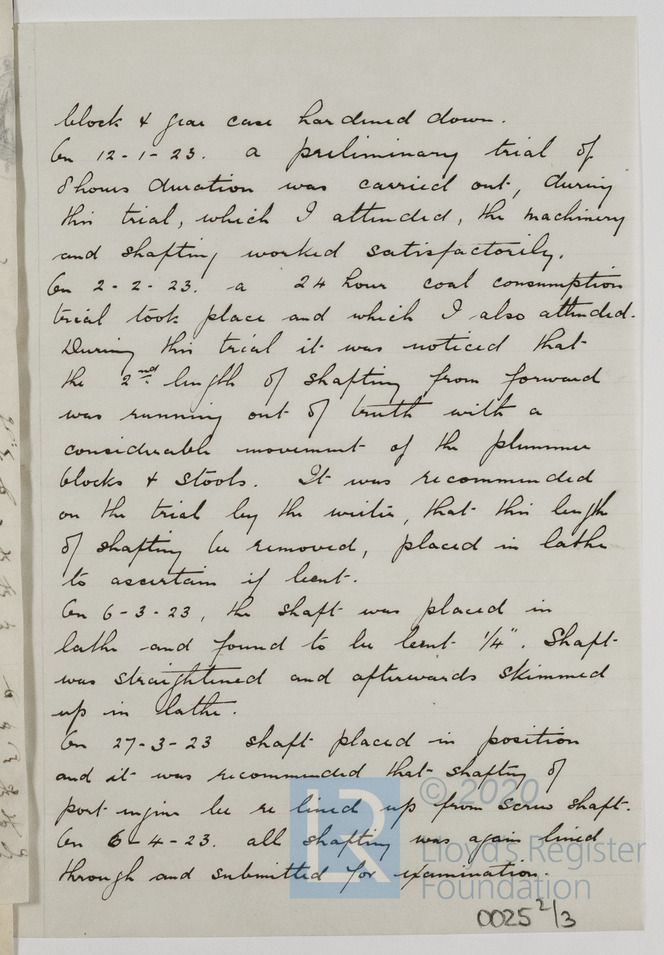 block & gear case hardened down.
On 12-1-23. a preliminary trial of
8 hours duration was carried out, during
this trial, which I attended, the machinery
and shafting worked satisfactorily.
On 2-2-23. a 24 hour coal consumption
trial took place and which I also attended.
During this trial it was noticed that
the 2nd length of shafting from forward
was running out of truth with a
considerable movement of the plummer
blocks & stools. It was recommended
on the trial by the writer, that this length
of shafting be removed, placed in lathe
to ascertain if bent.
On 6-3-23, the shaft was placed in
lathe and found to be bent 1/4". Shaft
was straightened and afterwards skimmed
up in lathe.
On 27-3-23 shaft placed in position
and it was recommended that shafting of
port engine be re lined up from screw shaft.
On 6-4-23. all shafting was again lined
through and submitted for examination.
LR © 2020
Lloyd's Register
Foundation
0025 2/3